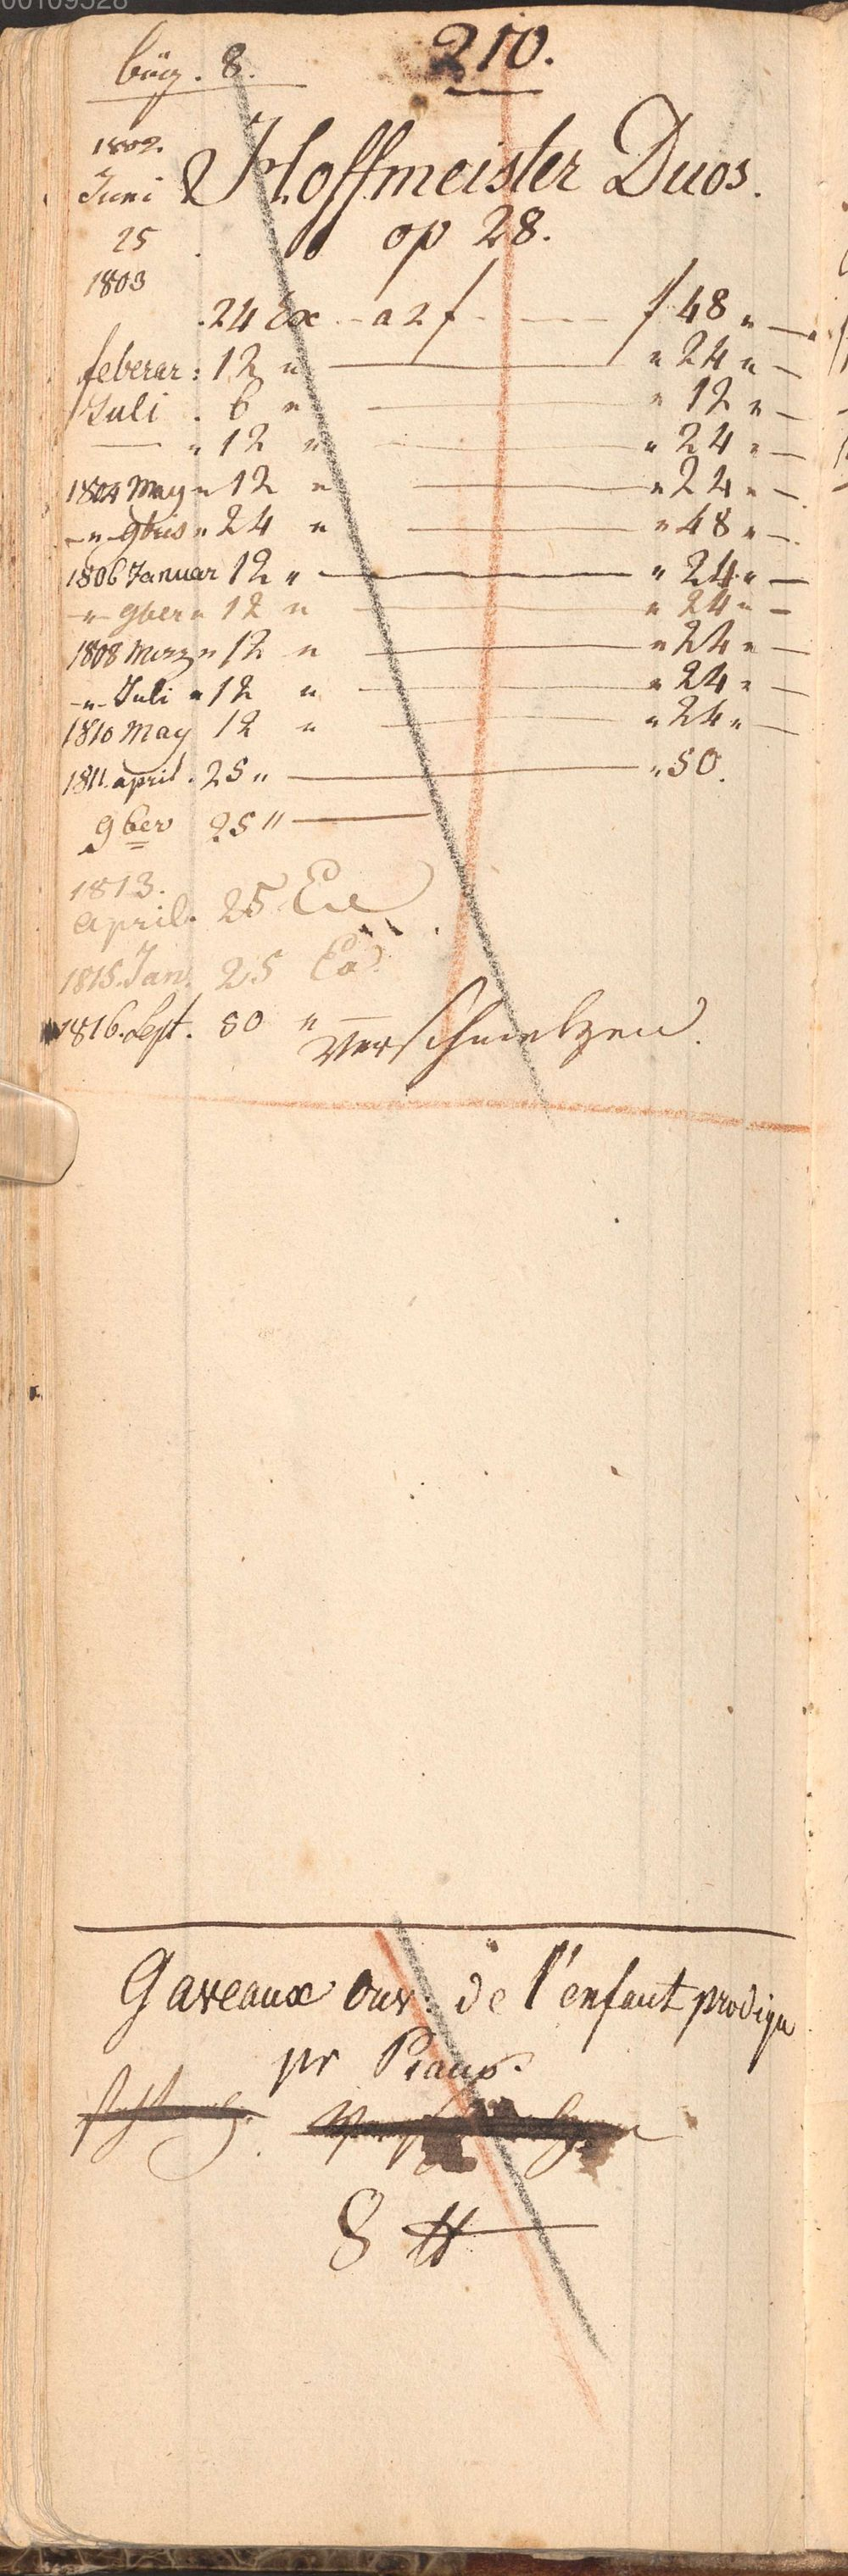 00109528
210.
1802.
Juni
Hoffmeister Duos.
25
op 28.
1803
24 Ex - a 2 f - f 48 „ —
feberar : 12 „ — „ 24 „ —
Juli . 6 „ — „ 12 „ —
— „ 12 „ — „ 24 „ —
1804 May „ 12 „ — „ 24 „ —
„ 9bris „ 24 „ — „ 48 „ —
1806 Januar 12 „ — „ 24 „ —
„ 9ber „ 12 „ — „ 24 „ —
1808 Merz „ 12 „ — „ 24 „ —
„ Juli „ 12 „ — „ 24 „ —
1810 May 12 „ — „ 24 „ —
1811. april . 25 „ — „ 50.
9ber 25 „ —
1813.
April. 25 Ex
1815. Jan. 25 Ex
1816. Sept. 50 „ —
Verschmelzen.
Gaveaux Ouv: de l'enfant prodigu
pr Piano.
8 #